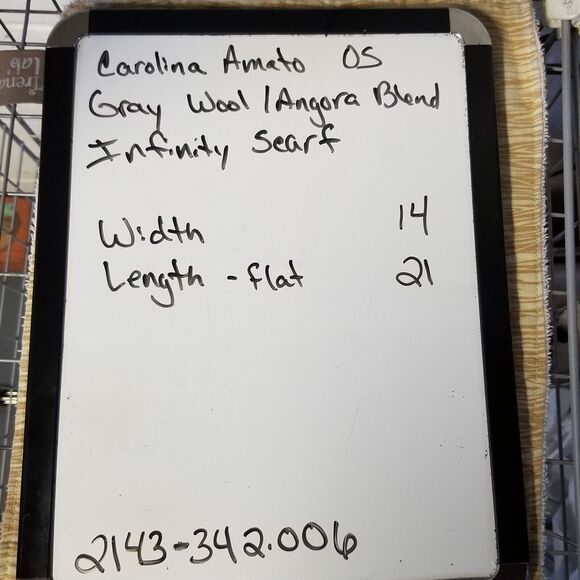 Carolina Amato OS
Gray Wool / Angora Blend
Infinity Scarf
Width 14
Length - flat 21
2143-342.006